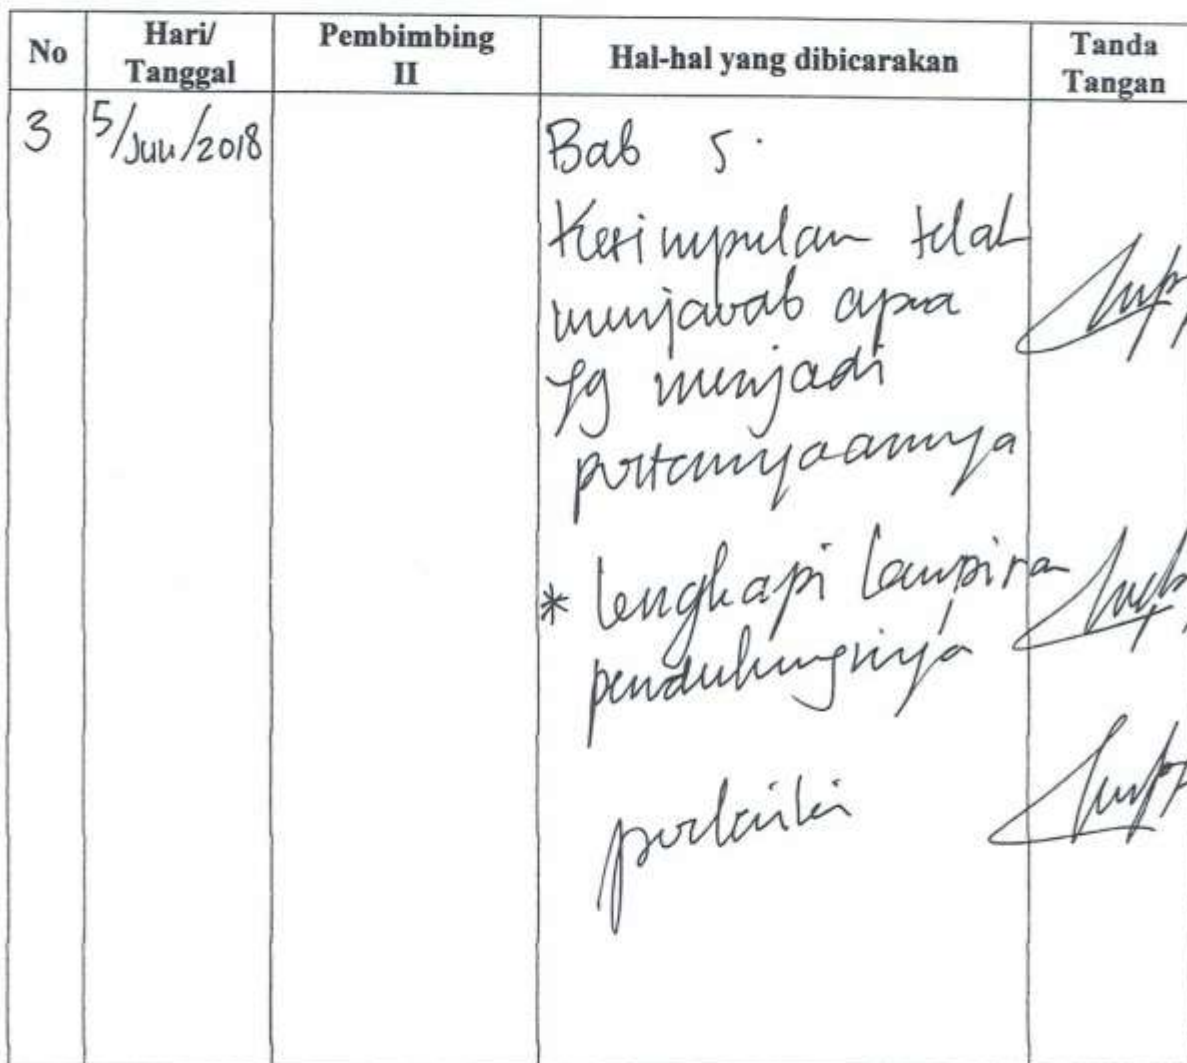 No
Hari/
Tanggal
Pembimbing
II
Hal-hal yang dibicarakan
Tanda
Tangan
3
5/Juli/2018
Bab 5.
Kesimpulan telah
menjawab apa
yg menjadi
pertanyaannya
* lengkapi lampiran
pendukungnya
perbaiki